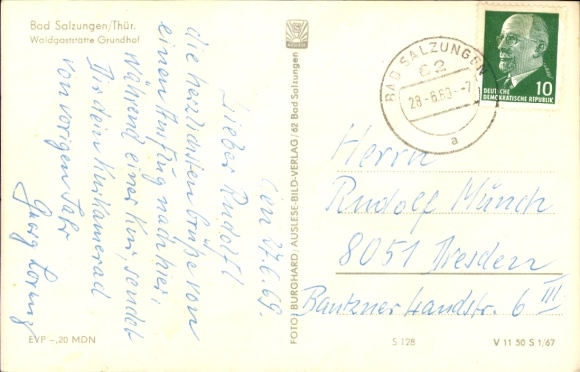 Bad Salzungen/Thür.
Waldgaststätte Grundhof
den 27.6.69.
Lieber Rudolf!
die herzlichsten Grüße von
einem Ausflug nach hier,
während einer Kur, sendet
Dir dein Kurkamerad
von vorigen Jahr
Georg
EVP -,20 MDN
FOTO BURGHARD / AUSLESE-BILD-VERLAG / 62 Bad Salzungen
BAD SALZUNGEN
62
28.-6.69.--7
a
10
DEUTSCHE
DEMOKRATISCHE REPUBLIK
Herrn
Rudolf Münch
8051 Dresden
Bautzner Landstr. 6 III
S 128
V 11 50 S 1/67